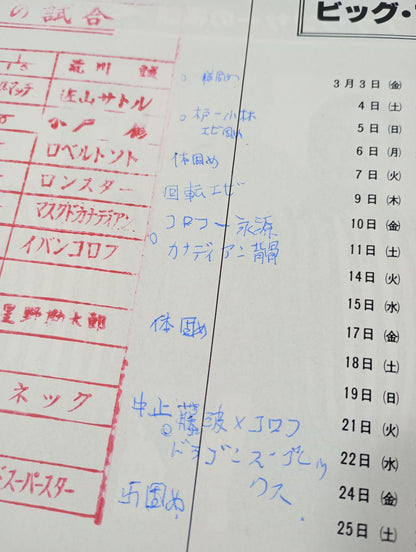 の試合
ビッグ・
荒川 誠
○ 横固め
佐山サトル
○ 木戸―小林
エビ固め
小戸 修
ロベルトソト
体固め
ロンスター
回転エビ
マスクドカナディアン
コロフ―永源
イバンコロフ
○ カナディアン背骨
星野勘太郎
体固め
ネック
中止 藤波×コロフ
○ ドラゴンスープレックス
ドスーパースター
片固め
3月3日(金)
4日(土)
5日(日)
6日(月)
7日(火)
9日(木)
10日(金)
11日(土)
14日(火)
15日(水)
17日(金)
18日(土)
19日(日)
21日(火)
22日(水)
24日(金)
25日(土)